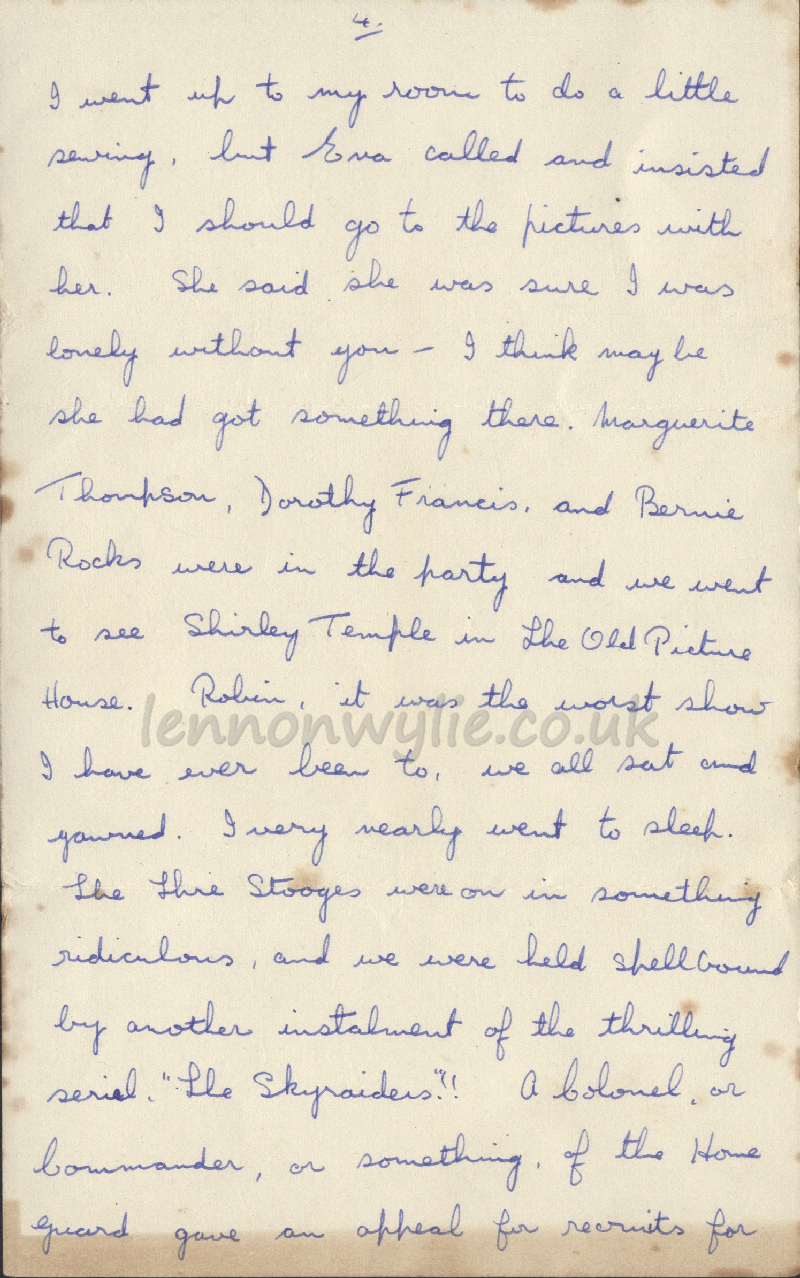 4.
I went up to my room to do a little
sewing, but Eva called and insisted
that I should go to the pictures with
her. She said she was sure I was
lonely without you – I think maybe
she had got something there. Marguerite
Thompson, Dorothy Francis, and Bernie
Rocks were in the party and we went
to see Shirley Temple in The Old Picture
House. Robin, it was the worst show
lennonwylie.co.uk
I have ever been to, we all sat and
yawned. I very nearly went to sleep.
The Thre Stooges were on in something
ridiculous, and we were held spellbound
by another instalment of the thrilling
seriel, "The Skyraiders"!! A Colonel, or
Commander, or something, of the Home
Guard gave an appeal for recruits for